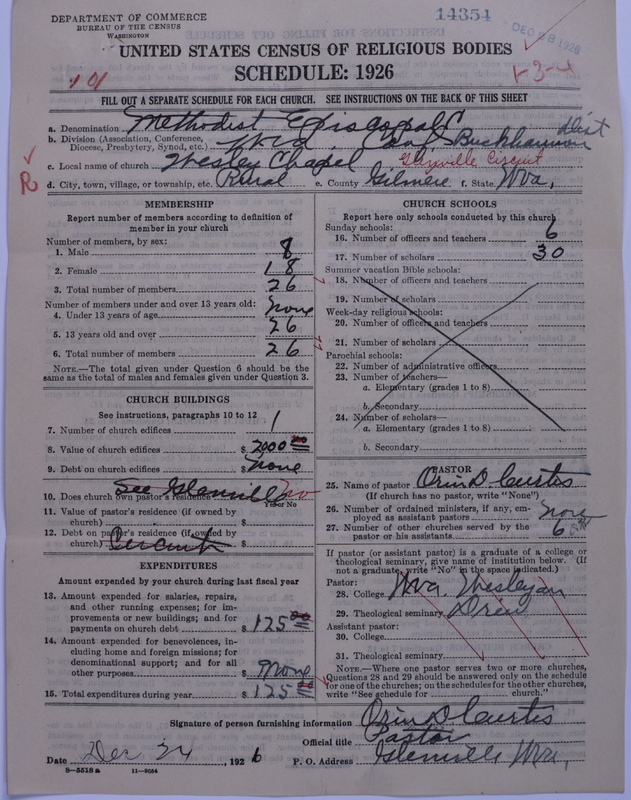 DEPARTMENT OF COMMERCE
BUREAU OF THE CENSUS
WASHINGTON
14354
DEC 28 1926
UNITED STATES CENSUS OF RELIGIOUS BODIES
SCHEDULE: 1926
101
1-3-4
FILL OUT A SEPARATE SCHEDULE FOR EACH CHURCH. SEE INSTRUCTIONS ON THE BACK OF THIS SHEET
a. Denomination Methodist Episcopal
b. Division (Association, Conference, Diocese, Presbytery, Synod, etc.) W Va Conf. Buckhannon Dist
c. Local name of church Wesley Chapel Glenville Circuit
R
d. City, town, village, or township, etc. Rural e. County Gilmere f. State Wva,
MEMBERSHIP
Report number of members according to definition of member in your church
Number of members, by sex:
1. Male 8
2. Female 18
3. Total number of members 26
Number of members under and over 13 years old:
4. Under 13 years of age None
5. 13 years old and over 26
6. Total number of members 26
NOTE.—The total given under Question 6 should be the same as the total of males and females given under Question 3.
CHURCH BUILDINGS
See instructions, paragraphs 10 to 12
7. Number of church edifices 1
8. Value of church edifices $ 2000 00
9. Debt on church edifices $ None
10. Does church own pastor's residence See Glenville no
Yes or No
11. Value of pastor's residence (if owned by church) $
12. Debt on pastor's residence (if owned by church) Circuit $
EXPENDITURES
Amount expended by your church during last fiscal year
13. Amount expended for salaries, repairs, and other running expenses; for improvements or new buildings; and for payments on church debt $ 125 00
14. Amount expended for benevolences, including home and foreign missions; for denominational support; and for all other purposes $ None
15. Total expenditures during year $ 125 00
CHURCH SCHOOLS
Report here only schools conducted by this church
Sunday schools:
16. Number of officers and teachers 6
17. Number of scholars 30
Summer vacation Bible schools:
18. Number of officers and teachers
19. Number of scholars
Week-day religious schools:
20. Number of officers and teachers
21. Number of scholars
Parochial schools:
22. Number of administrative officers
23. Number of teachers—
a. Elementary (grades 1 to 8)
b. Secondary
24. Number of scholars—
a. Elementary (grades 1 to 8)
b. Secondary
PASTOR
25. Name of pastor Orin D. Curtis
(If church has no pastor, write "None")
26. Number of ordained ministers, if any, employed as assistant pastors None
27. Number of other churches served by the pastor or his assistants 6
If pastor (or assistant pastor) is a graduate of a college or theological seminary, give name of institution below. (If not a graduate, write "No" in the space indicated.)
Pastor:
28. College Wva. Wesleyan
29. Theological seminary Drew
Assistant pastor:
30. College
31. Theological seminary
NOTE.—Where one pastor serves two or more churches, Questions 28 and 29 should be answered only on the schedule for one of the churches; on the schedules for the other churches, write "See schedule for ____ church."
Signature of person furnishing information Orin D Curtis
Official title Pastor
Date Dec 24, 1926 P. O. Address Glenville Wva,
8—5518a 11—9054